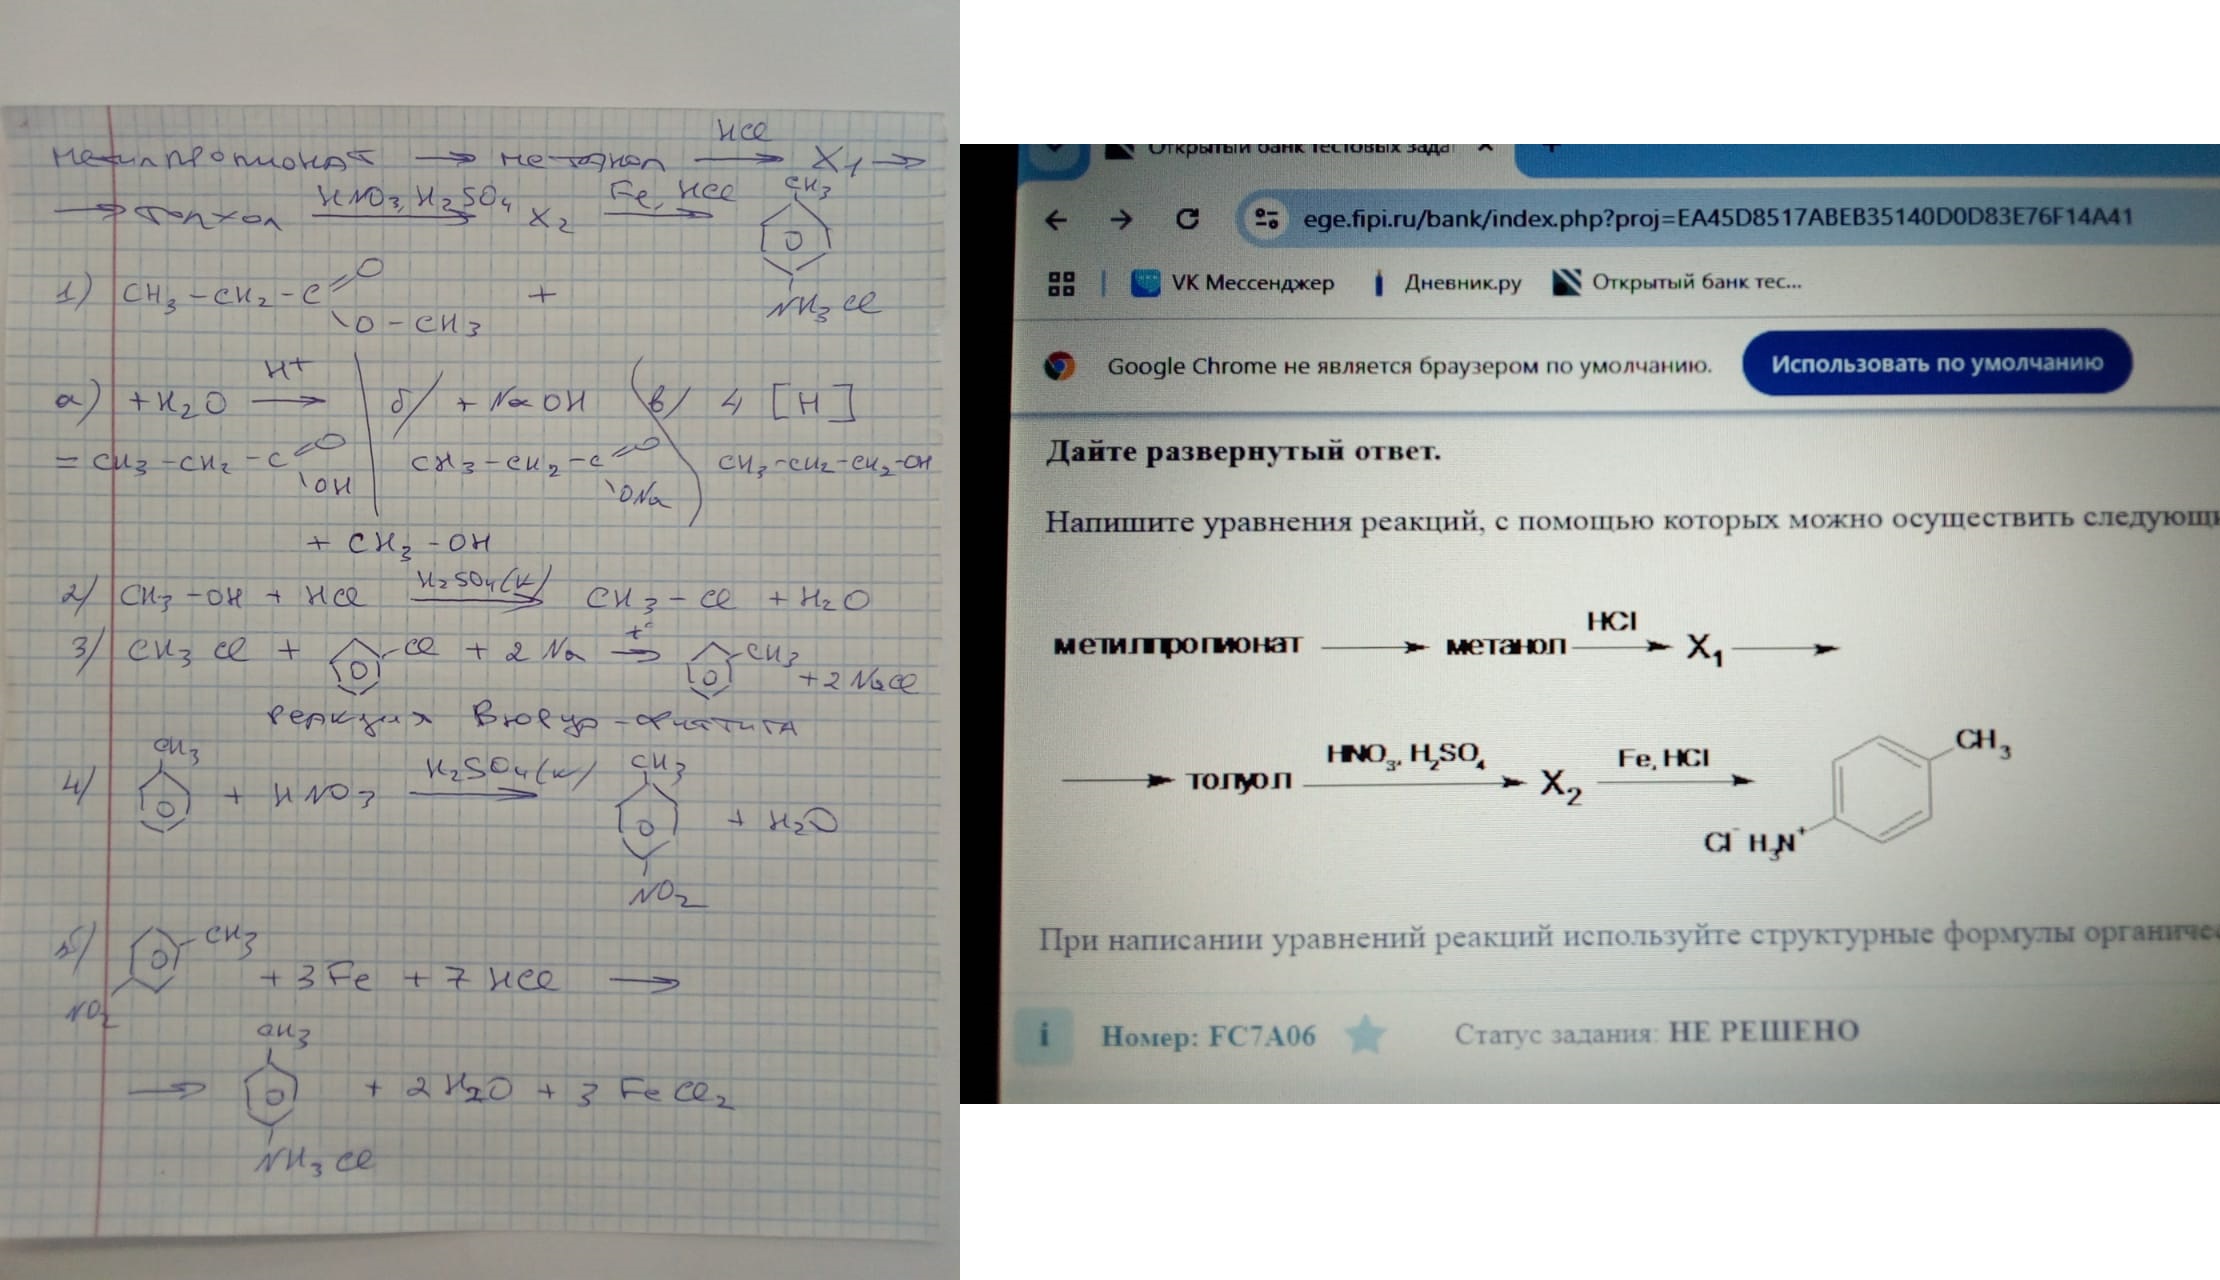 метилпропионат → метанол HCl → X1 →
→ толуол HNO3, H2SO4 → X2 Fe, HCl → CH3
NH3Cl
1) CH3 - CH2 - C =O +
\O - CH3
а) + H2O H+ → б) + NaOH в) 4 [H]
= CH3 - CH2 - C =O CH3 - CH2 - C =O CH3-CH2-CH2-OH
\OH \ONa
+ CH3 - OH
2) CH3 - OH + HCl H2SO4(к) → CH3 - Cl + H2O
3) CH3Cl + -Cl + 2Na t° → -CH3 + 2NaCl
реакция Вюрца-Фиттига
4) CH3 + HNO3 H2SO4(к) → CH3 + H2O
NO2
5) -CH3 + 3Fe + 7HCl →
NO2
→ CH3 + 2H2O + 3FeCl2
NH3Cl
Открытый банк тестовых зада × +
ege.fipi.ru/bank/index.php?proj=EA45D8517ABEB35140D0D83E76F14A41
VK Мессенджер Дневник.ру Открытый банк тес...
Google Chrome не является браузером по умолчанию. Использовать по умолчанию
Дайте развернутый ответ.
Напишите уравнения реакций, с помощью которых можно осуществить следующи
метилпропионат → метанол HCl → X1 →
→ толуол HNO3, H2SO4 → X2 Fe, HCl → CH3
Cl- H3N+
При написании уравнений реакций используйте структурные формулы органичес
i Номер: FC7A06 Статус задания: НЕ РЕШЕНО